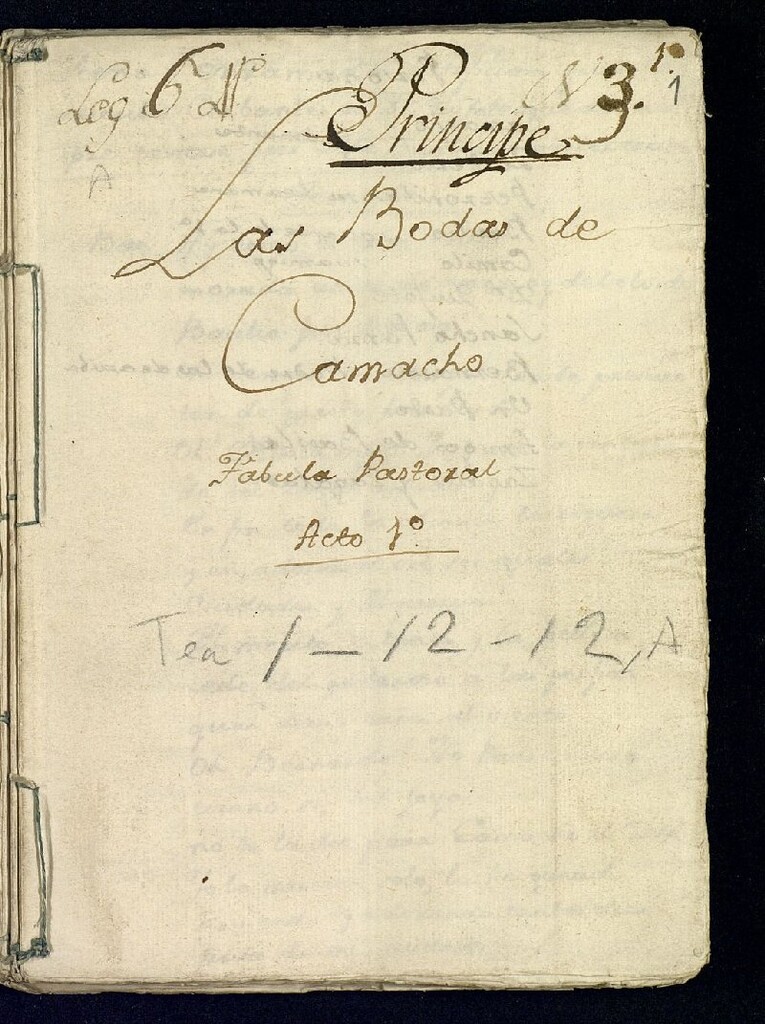 Leg 6
N 3. 1º
1
Principe
A
Las Bodas de
Camacho
Fabula Pastoral
Acto 1º
Tea 1-12-12, A